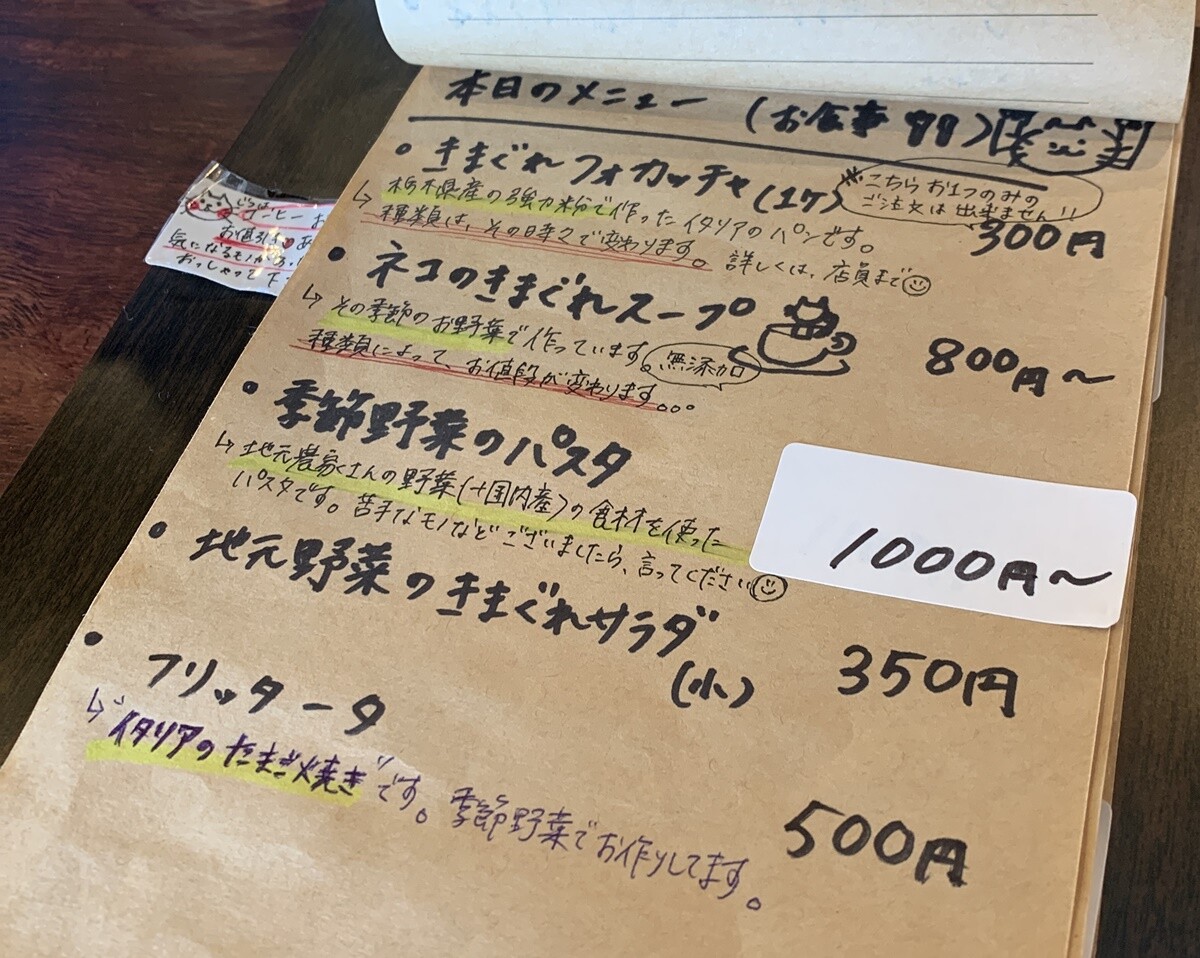 本日のメニュー (お食事
・きまぐれフォカッチャ(1ケ)
※こちらお1つのみの
ご注文は出来ません!!
300円
↳栃木県産の強力粉で作ったイタリアのパンです。
種類は、その日々で変わります。詳しくは、店員まで
・ネコのきまぐれスープ
800円〜
↳その季節のお野菜で作っています。
無添加
種類によって、お値段が変わります。。。
・季節野菜のパスタ
1000円〜
↳地元農家さんの野菜(+国内産)の食材を使った
パスタです。苦手なモノなどございましたら、言ってください
・地元野菜のきまぐれサラダ
(小)
350円
・フリッタータ
500円
↳"イタリアのたまご焼き"です。季節野菜でお作りしてます。
じつは
コーヒー お
お値引き あ
気になるモノがあ
おっしゃって下